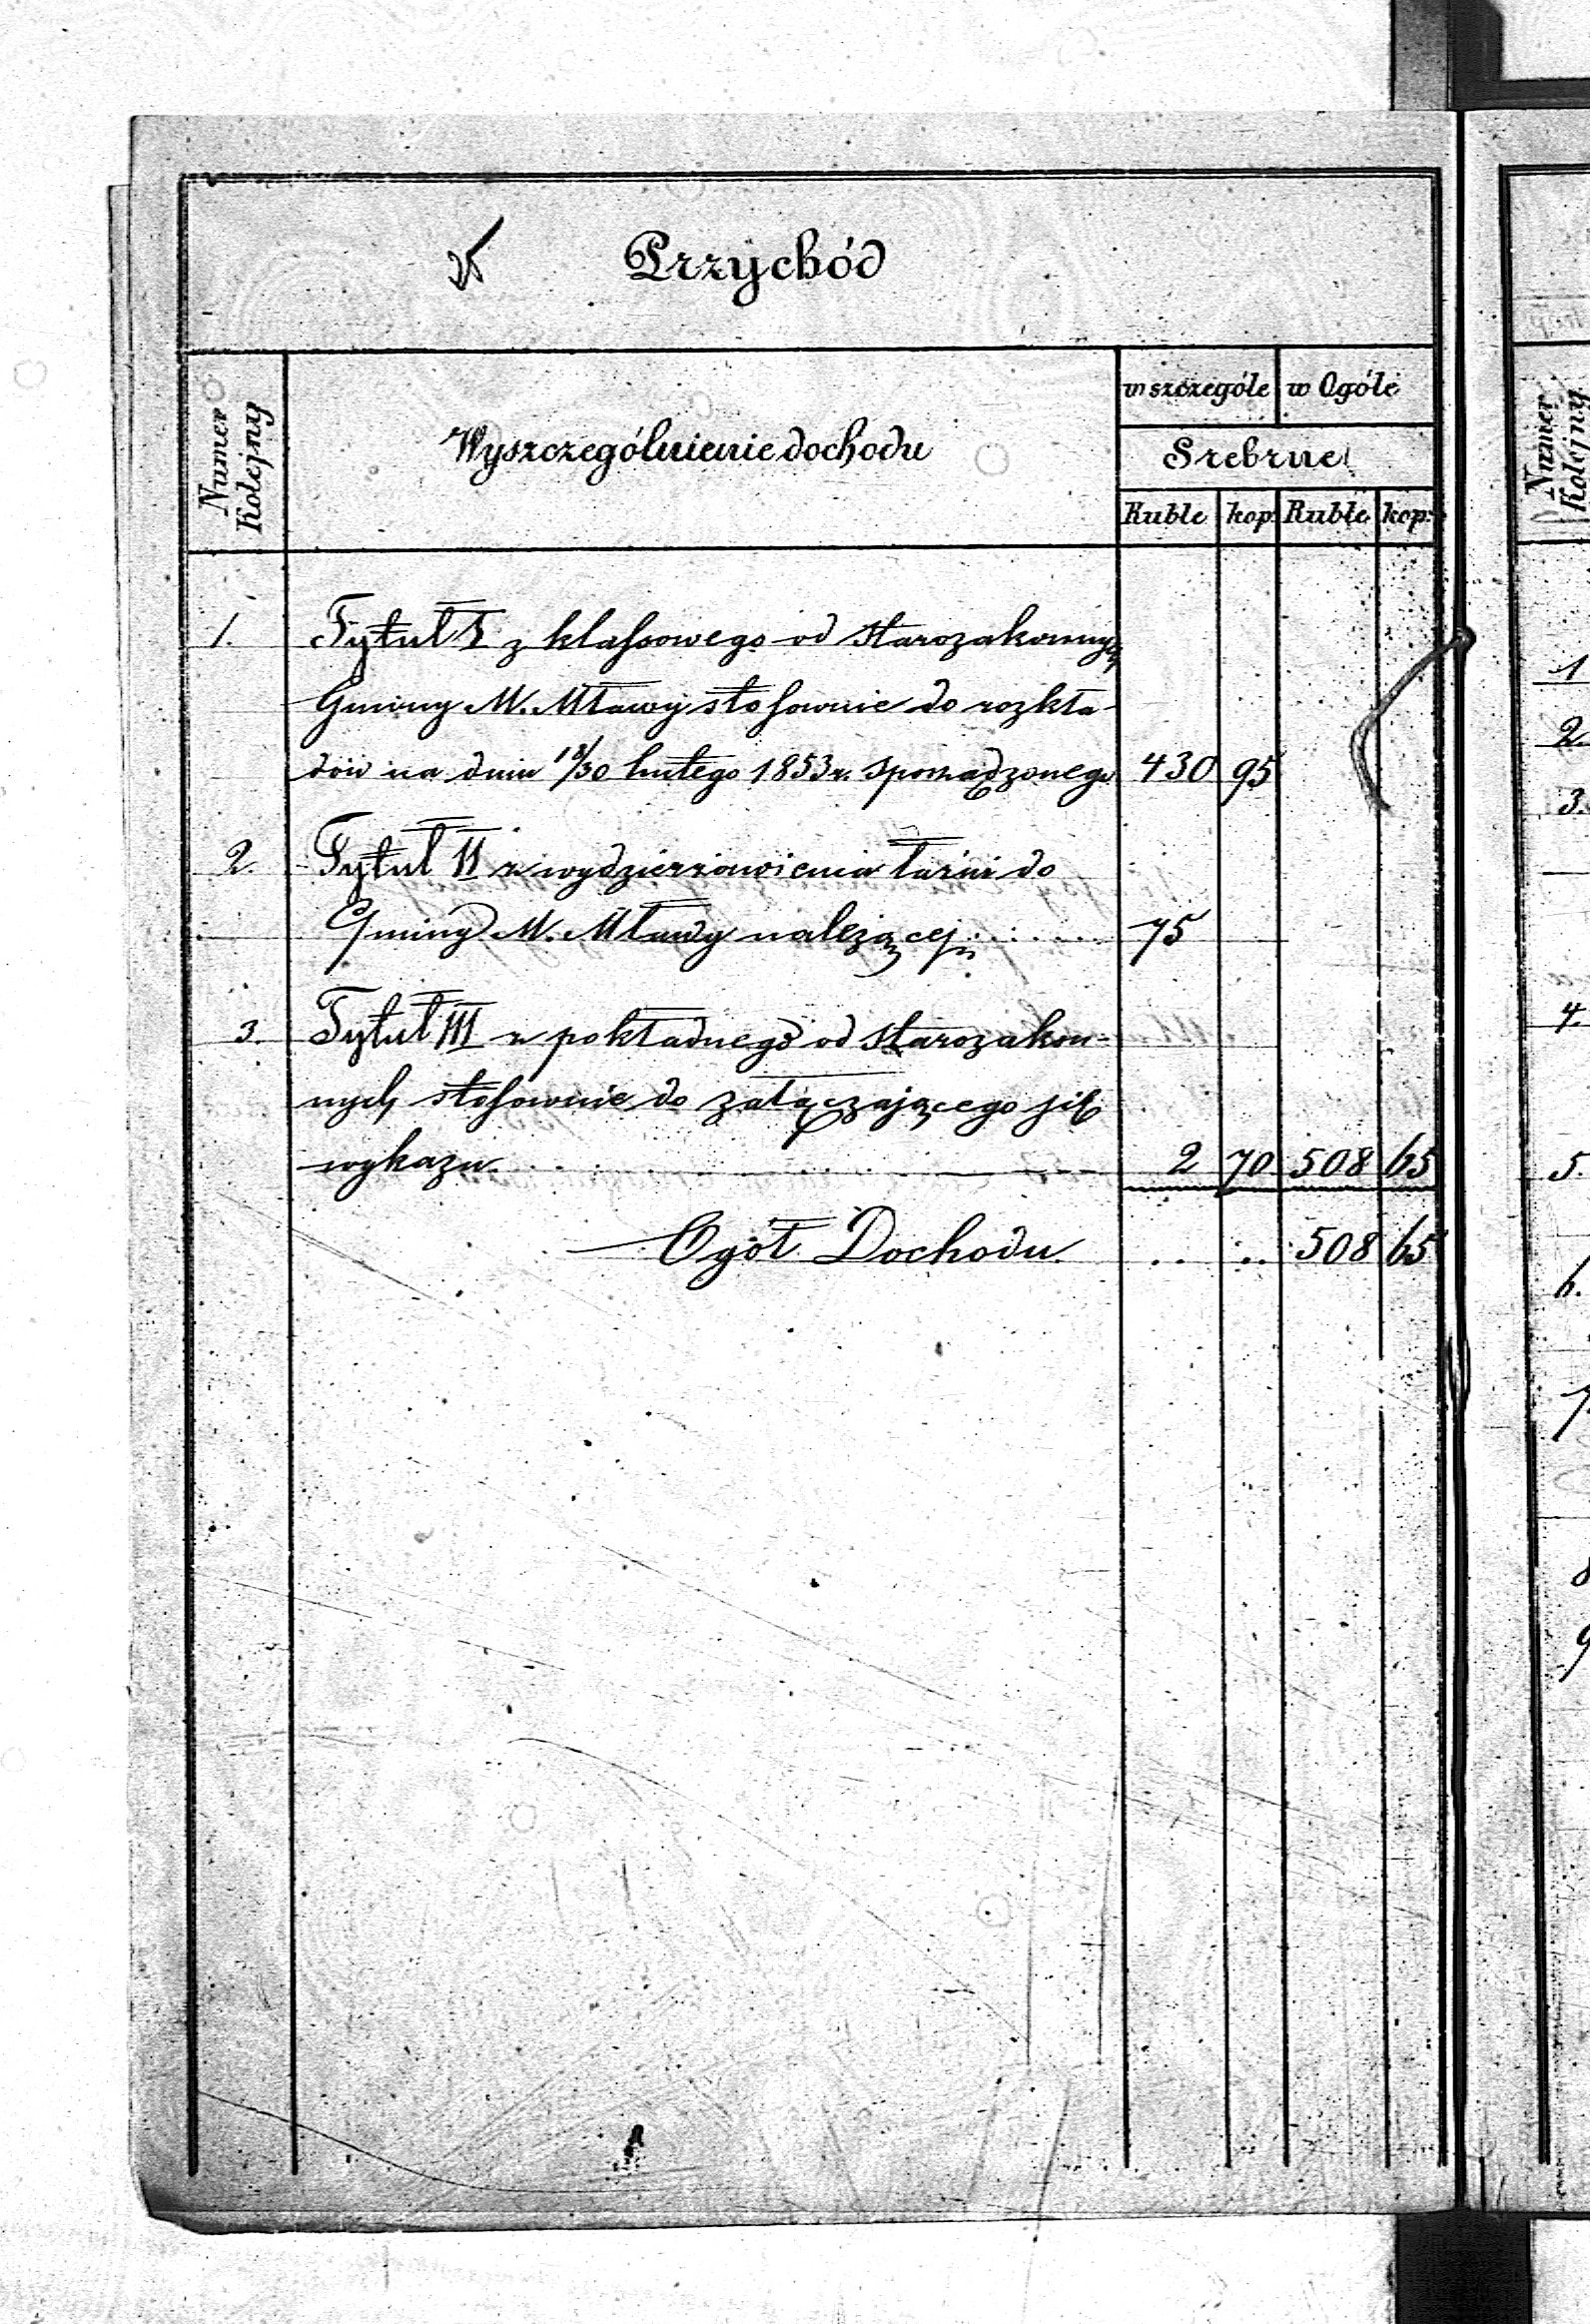 Przychód
Numer Kolejny
Wyszczególnienie dochodu
w szczególe
w Ogóle
Srebrne
Ruble
kop:
Ruble
kop:
1. Tytuł I z klassowego od starozakonnych
Gminy M. Mławy stosownie do rozkła-
dów na dniu 18/30 lutego 1853 r. sporządzonego 430 95
2. Tytuł II z wydzierżawienia łaźni do
Gminy M. Mławy należącej 75
3. Tytuł III z pokładnego od starozakon-
nych stosownie do załączającego się
wykazu 2 70 508 65
Ogół Dochodu 508 65
Numer Kolejny
1
2.
3.
4.
5.
6.
7.
8
9